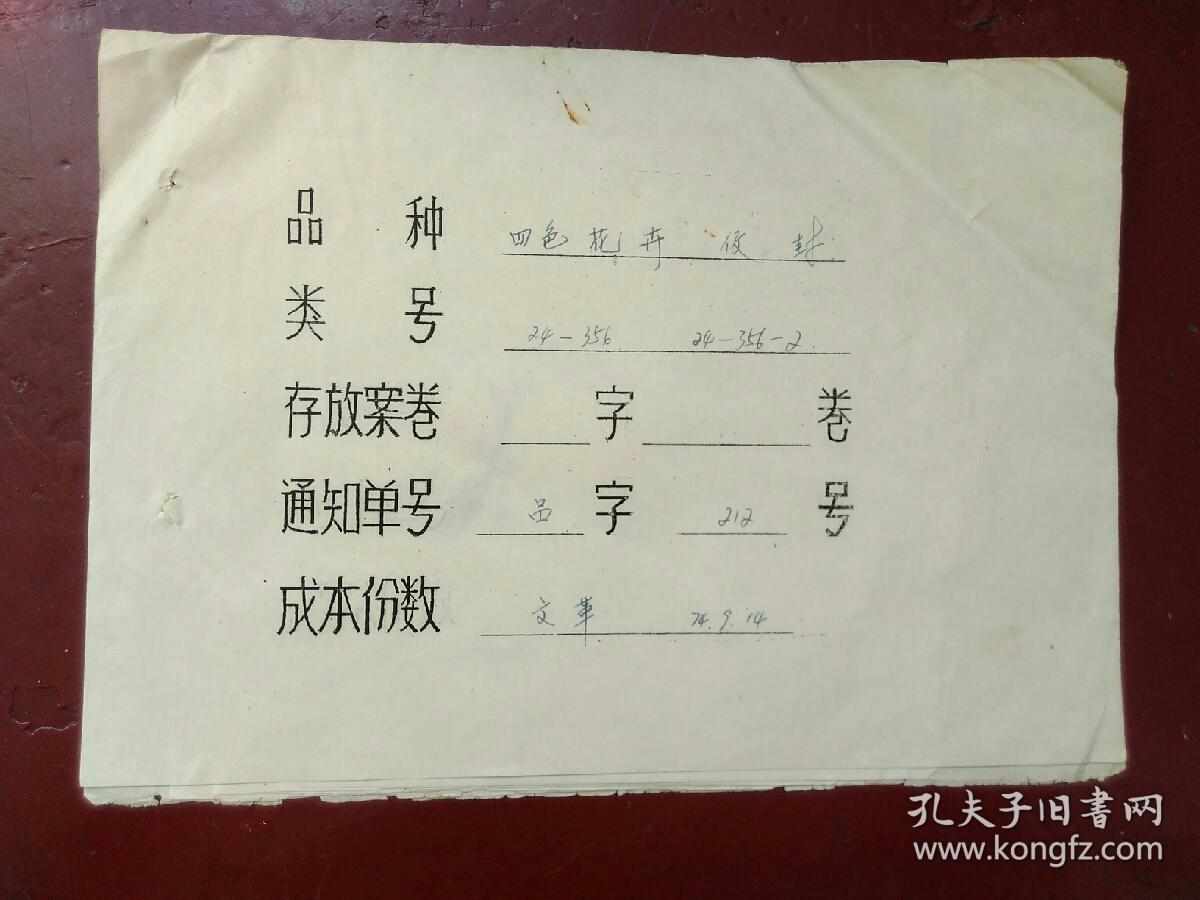 品种 四色花卉 信封
类号 24-356. 24-356-2.
存放案卷 字 卷
通知单号 品字 212 号
成本份数 文革 74.9.14
孔夫子旧书网
www.kongfz.com